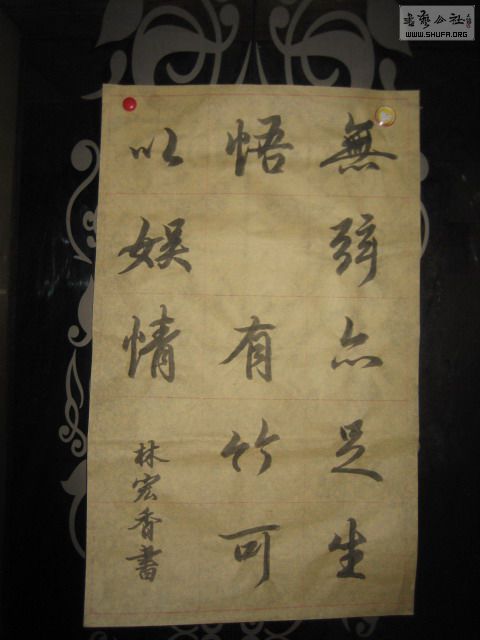 無弦亦足生
悟 有竹可
以娱情
林宏香書
書藝公社
WWW.SHUFA.ORG